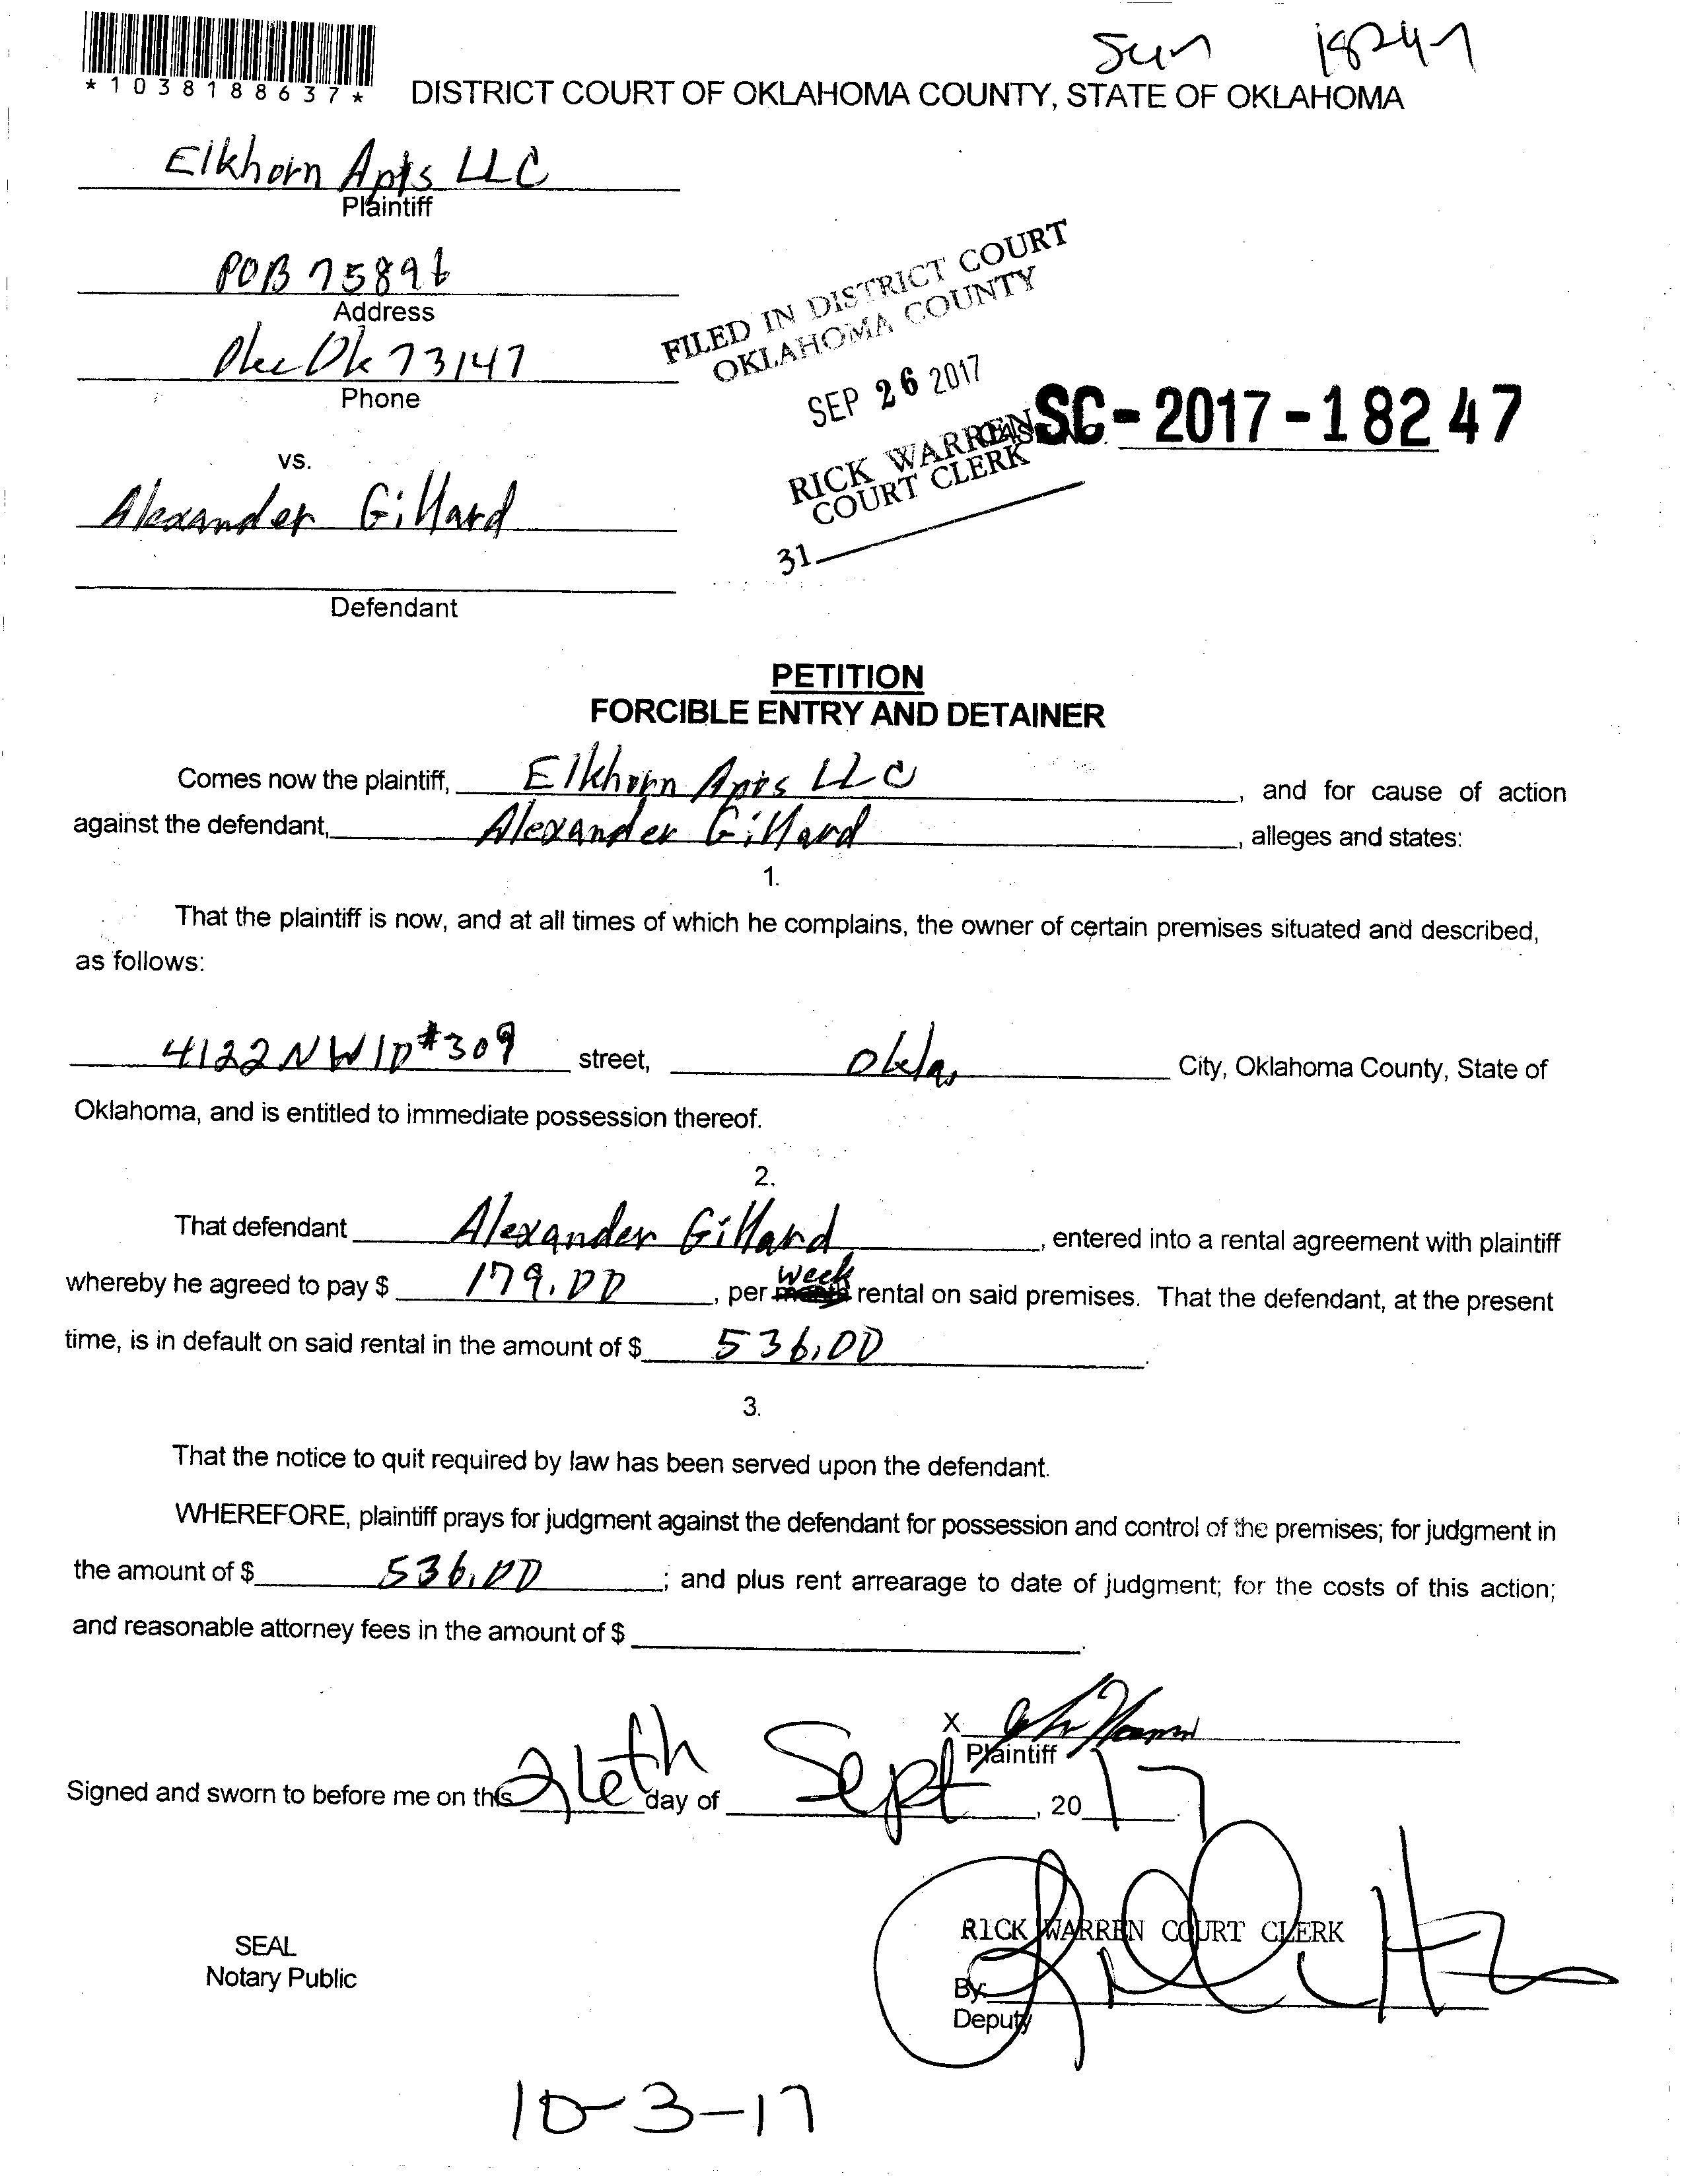 Sun 18247
*1038188637*
DISTRICT COURT OF OKLAHOMA COUNTY, STATE OF OKLAHOMA
Elkhorn Apts LLC
Plaintiff
POB 75896
Address
Okc Ok 73147
Phone
FILED IN DISTRICT COURT
OKLAHOMA COUNTY
SEP 26 2017
RICK WARREN
COURT CLERK
31
SC-2017-18247
vs.
Alexander Gillard
Defendant
PETITION
FORCIBLE ENTRY AND DETAINER
Comes now the plaintiff, Elkhorn Apts LLC, and for cause of action
against the defendant, Alexander Gillard, alleges and states:
1.
That the plaintiff is now, and at all times of which he complains, the owner of certain premises situated and described,
as follows:
4122 NW 10 #309 street, Okla, City, Oklahoma County, State of
Oklahoma, and is entitled to immediate possession thereof.
2.
That defendant Alexander Gillard, entered into a rental agreement with plaintiff
whereby he agreed to pay $ 179.00, per month week rental on said premises. That the defendant, at the present
time, is in default on said rental in the amount of $ 536.00.
3.
That the notice to quit required by law has been served upon the defendant.
WHEREFORE, plaintiff prays for judgment against the defendant for possession and control of the premises; for judgment in
the amount of $ 536.00; and plus rent arrearage to date of judgment; for the costs of this action;
and reasonable attorney fees in the amount of $ .
X
Plaintiff
Signed and sworn to before me on this 26th day of Sept, 2017.
RICK WARREN COURT CLERK
SEAL
Notary Public
By:
Deputy
10-3-17